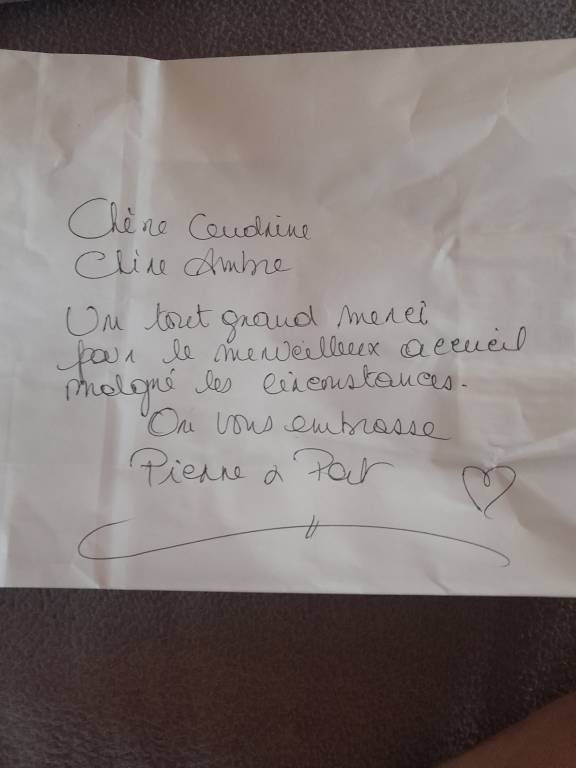 Chère Cendrine
Chère Ambre
Un tout grand merci
pour le merveilleux accueil
malgré les circonstances.
On vous embrasse
Pierre & Pat